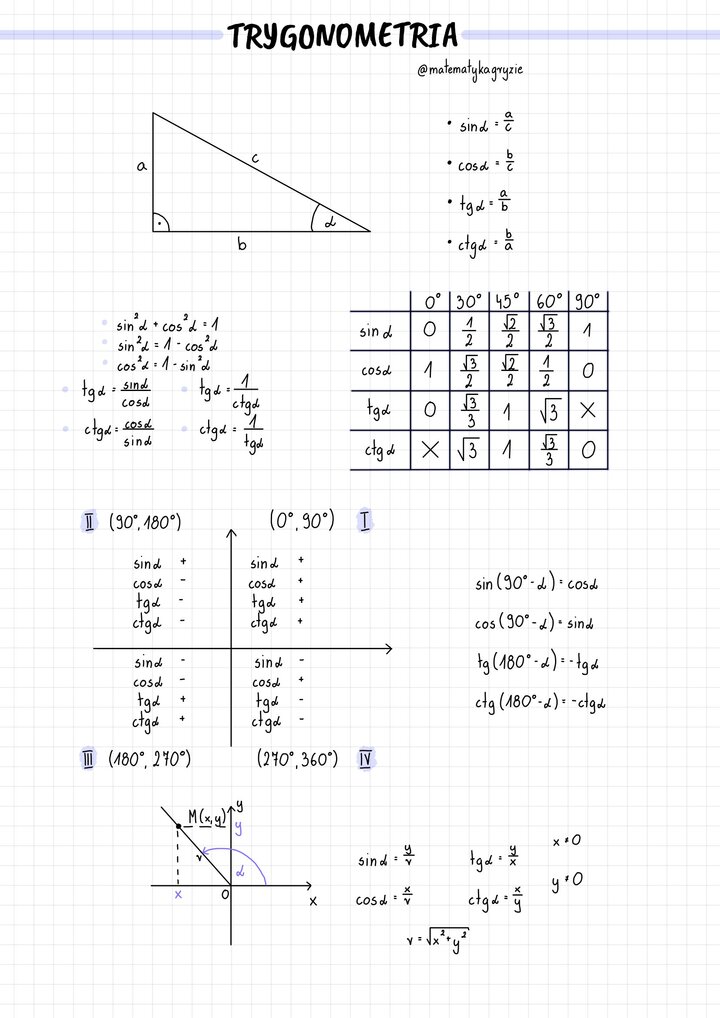 TRYGONOMETRIA
@matematykagryzie
a
c
b
α
• sinα = a/c
• cosα = b/c
• tgα = a/b
• ctgα = b/a
• sin²α + cos²α = 1
• sin²α = 1 - cos²α
• cos²α = 1 - sin²α
• tgα = sinα/cosα • tgα = 1/ctgα
• ctgα = cosα/sinα • ctgα = 1/tgα
0° 30° 45° 60° 90°
sinα 0 1/2 √2/2 √3/2 1
cosα 1 √3/2 √2/2 1/2 0
tgα 0 √3/3 1 √3 X
ctgα X √3 1 √3/3 0
II (90°, 180°) (0°, 90°) I
sinα + sinα +
cosα - cosα +
tgα - tgα +
ctgα - ctgα +
sinα - sinα -
cosα - cosα +
tgα + tgα -
ctgα + ctgα -
III (180°, 270°) (270°, 360°) IV
sin(90°-α) = cosα
cos(90°-α) = sinα
tg(180°-α) = -tgα
ctg(180°-α) = -ctgα
y
M(x,y)
y
r
α
x
0
x
sinα = y/r tgα = y/x x ≠ 0
cosα = x/r ctgα = x/y y ≠ 0
r = √x²+y²